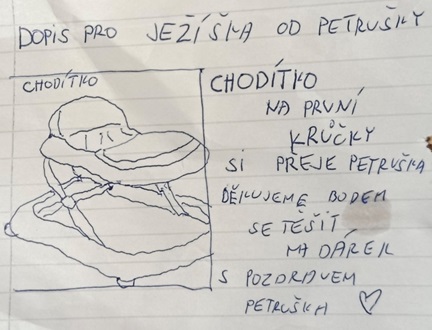 DOPIS PRO JEŽÍŠKA OD PETRUŠKY
CHODÍTKO
CHODÍTKO
NA PRVNÍ
KRŮČKY
SI PŘEJE PETRUŠKA
DĚKUJEME BUDEM
SE TĚŠIT
NA DÁREK
S POZDRAVEM
PETRUŠKA ♡